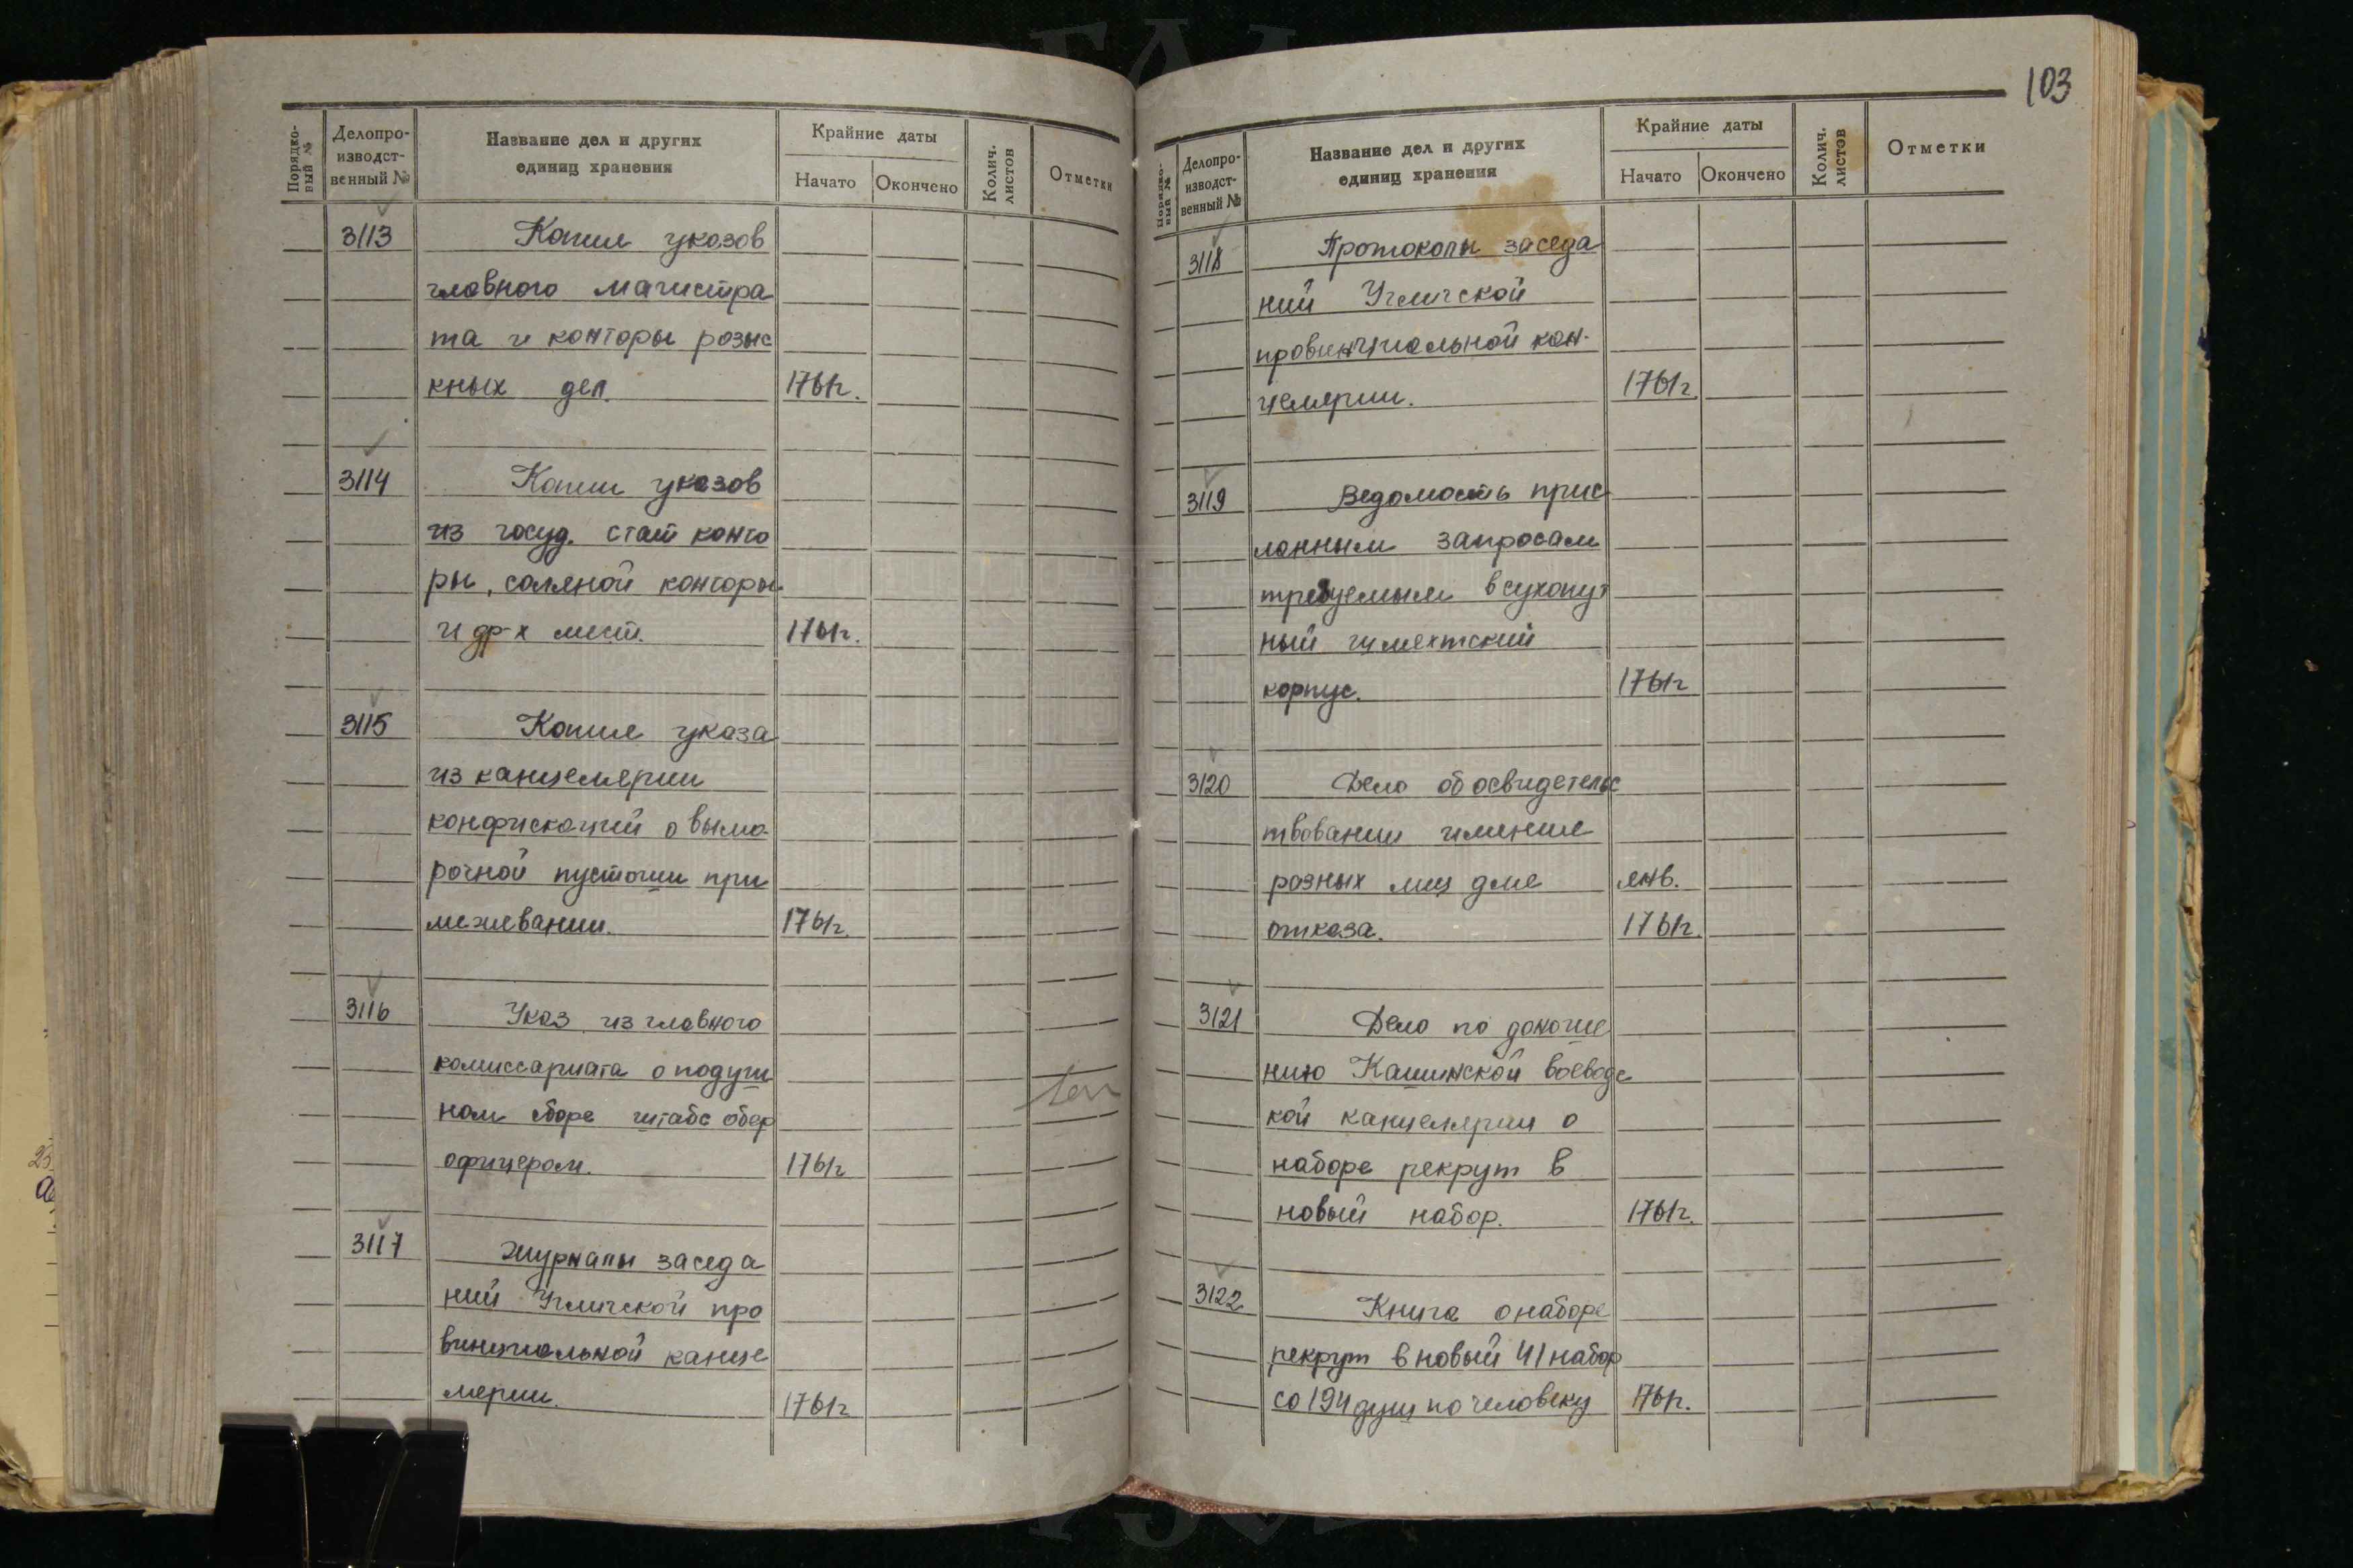 103
Порядко-
вый №
Делопро-
изводст-
венный №
Название дел и других
единиц хранения
Крайние даты
Начато
Окончено
Колич.
листов
Отметки
3113 Копии указов
главного магистра
та и конторы розыс
кных дел. 1761г.
3114 Копии указов
из госуд. стат конто
ры, соляной конторы
и др-х мест. 1761г.
3115 Копия указа
из канцелярии
конфискаций о вымо-
рочной пустоши при
межевании. 1761г.
3116 Указ из главного
комиссариата о подуш
ном сборе штабс обер
офицерам. 1761г
3117 Журналы заседа
ний Угличской про
винциальной канце
лярии. 1761г
Порядко-
вый №
Делопро-
изводст-
венный №
Название дел и других
единиц хранения
Крайние даты
Начато
Окончено
Колич.
листов
Отметки
3118 Протоколы заседа
ний Угличской
провинциальной кан-
целярии. 1761г.
3119 Ведомость прис
ланным запросам
требуемым в сухопут
ный шляхтский
корпус. 1761г
3120 Дело об освидетельс
твовании имения
разных лиц для янв.
отказа. 1761г.
3121 Дело по доноше
нию Кашинской воеводс
кой канцелярии о
наборе рекрут в
новый набор. 1761г.
3122 Книга о наборе
рекрут в новый 41 набор
со 194 душ по человеку 1761г.